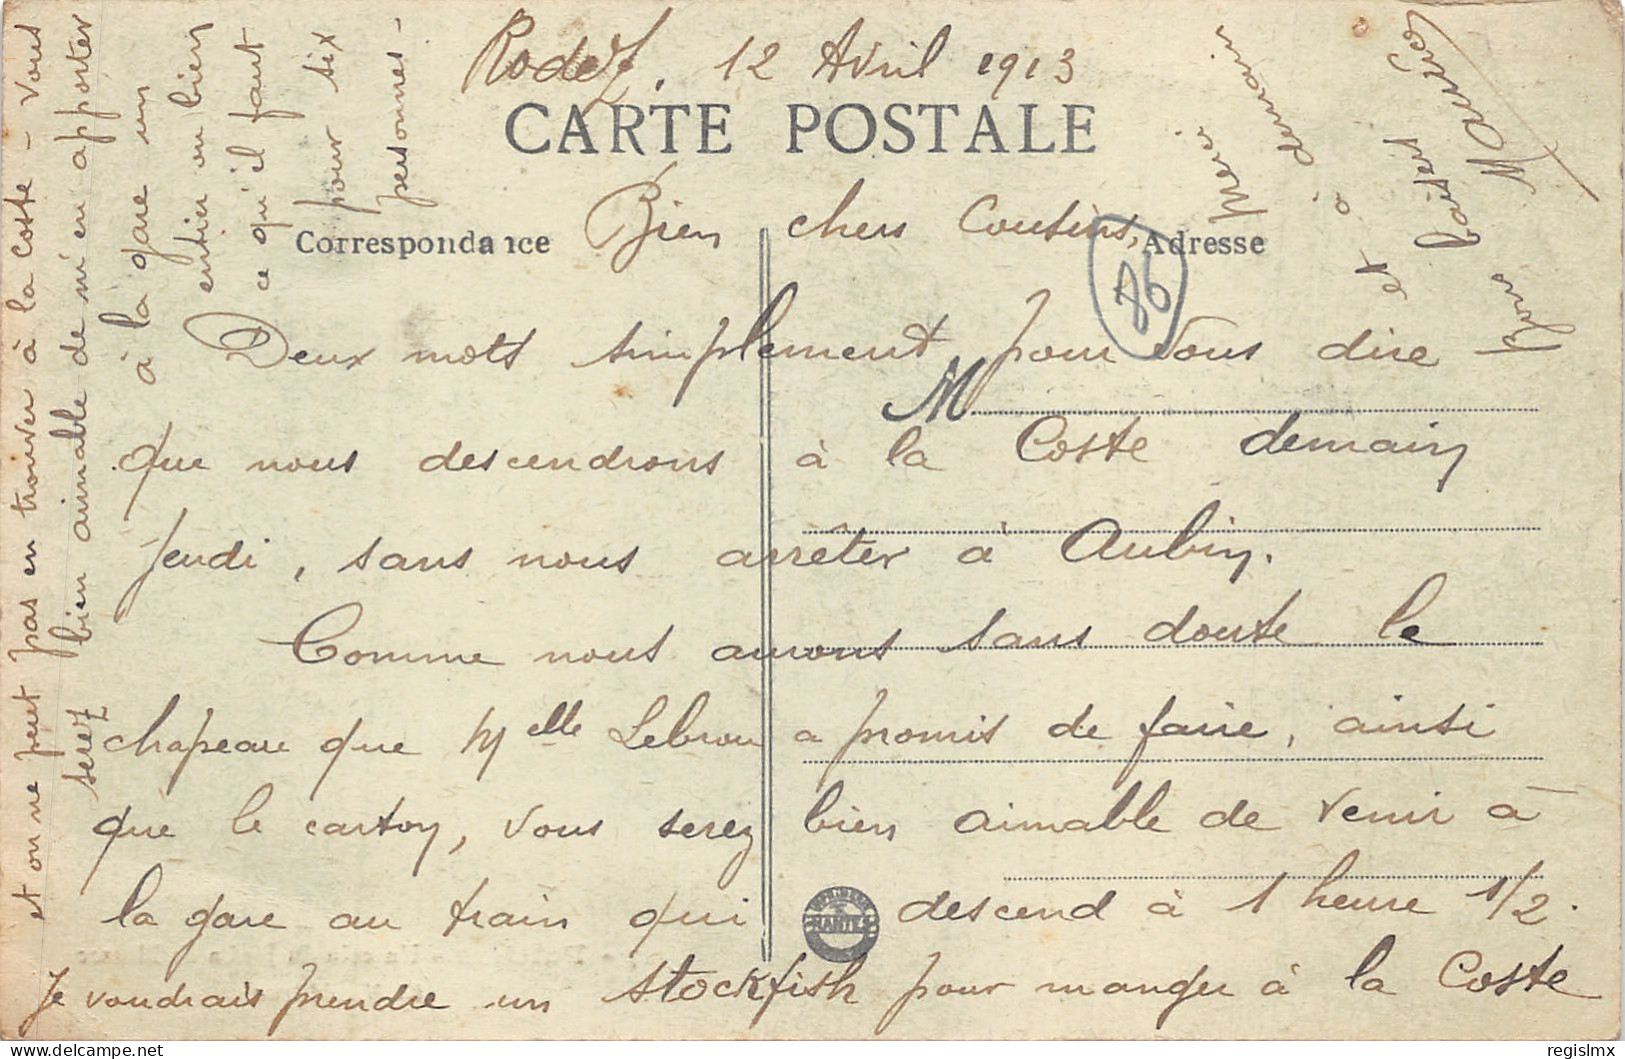 Rodez, 12 Avril 1913
CARTE POSTALE
Correspondance
Adresse
Bien chers Cousins,
86
Deux mots simplement pour vous dire
M
que nous descendrons à la Coste demain
Jeudi, sans nous arrêter à Aubin.
Comme nous aurons sans doute le
chapeau que Melle Lebrou a promis de faire, ainsi
que le carton, vous serez bien aimable de venir à
la gare au train qui descend à 1 heure 1/2.
NANTES
Je voudrais prendre un stockfish pour manger à la Coste
et on ne peut pas en trouver à la Coste - Vous
serez bien aimable de m'en apporter
à la gare un
entier ou bien
ce qu'il faut
pour six
personnes -
Merci
demain
et à
baisers
Maurice
regislmx